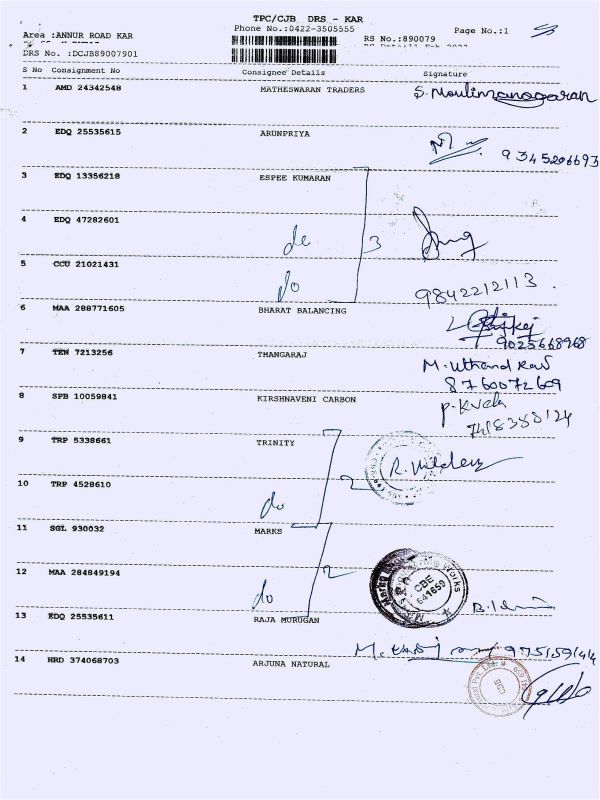 TPC/CJB DRS - KAR
Phone No.:0422-3505555
Page No.:1
Area :ANNUR ROAD KAR
RS No.:890079
DRS No. :DCJB89007901
S No Consignment No Consignee Details Signature
1 AMD 24342548 MATHESWARAN TRADERS
2 EDQ 25535615 ARUNPRIYA
9345206693
3 EDQ 13356218 ESPEE KUMARAN
4 EDQ 47282601 do 3
5 CCU 21021431 do
9842212113
6 MAA 288771605 BHARAT BALANCING
9025668968
7 TEN 7213256 THANGARAJ
8760072609
8 SPB 10059841 KIRSHNAVENI CARBON
7418388124
9 TRP 5338661 TRINITY
10 TRP 4528610 do 2
11 SGL 930032 MARKS
12 MAA 284849194 do 2
CBE
641659
Works
13 EDQ 25535611 RAJA MURUGAN
14 HRD 374068703 ARJUNA NATURAL